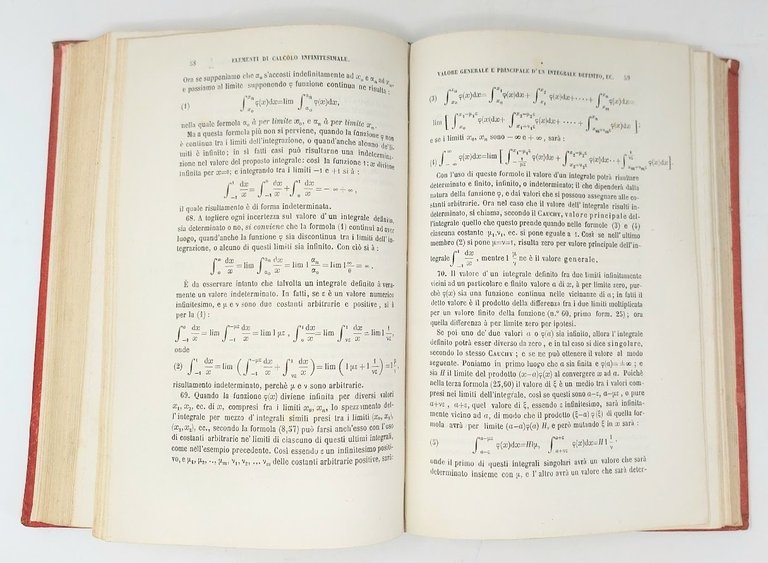 58 ELEMENTI DI CALCOLO INFINITESIMALE.
Ora se supponiamo che aₙ s'accosti indefinitamente ad x₀ e αₙ ad xₙ,
e possiamo al limite supponendo φ funzione continua ne risulta :
(1) ∫ φ(x)dx=lim ∫ φ(x)dx,
nella quale formola aₙ à per limite x₀, e αₙ à per limite xₙ.
Ma a questa formola più non si perviene, quando la funzione φ non
è continua tra i limiti dell'integrazione, o quand'anche alcuno de' li-
miti è infinito; in sì fatti casi può risultarne una indetermina-
zione nel valore del proposto integrale: così la funzione 1 : x divien
infinita per x=0; e integrando tra i limiti −1 e +1 si à :
∫₋₁¹ dx/x = ∫₋₁⁰ dx/x + ∫₀¹ dx/x = − ∞ + ∞ ,
il quale risultato è di forma indeterminata.
68. A togliere ogni incertezza sul valore d'un integrale definito,
sia determinato o no, si conviene che la formola (1) continui ad aver
luogo, quand'anche la funzione φ sia discontinua tra i limiti dell'in-
tegrazione, o alcuno di questi limiti sia infinito. Con ciò si à :
= lim = lim 1 = lim 1 = ∞ .
È da osservare intanto che talvolta un integrale definito à vera-
mente un valore indeterminato. In fatti, se ε è un valore numerico
infinitesimo, e μ e ν sono due costanti arbitrarie e positive , si à
per la (1) :
= lim = lim 1 με , = lim = lim 1 1/νε,
onde
(2) ∫₋₁¹ dx/x = lim (∫₋₁^−με dx/x + ∫νε¹ dx/x) = lim (1 με + 1 1/νε) = 1 μ/ν,
risultamento indeterminato, perchè μ e ν sono arbitrarie.
69. Quando la funzione φ(x) diviene infinita per diversi valori
x₁, x₂, ec. di x, compresi fra i limiti x₀, xₙ, lo spezzamento del-
l'integrale per mezzo d'integrali simili presi tra i limiti (x₀, x₁),
(x₁, x₂), ec., secondo la formola (8,57) può farsi anch'esso con l'uso
di costanti arbitrarie ne' limiti di ciascuno di questi ultimi integrali,
come nell'esempio precedente. Così essendo ε un infinitesimo positi-
vo, e μ₁, μ₂, .., μₘ, ν₁, ν₂, ... νₘ delle costanti arbitrarie positive, sarà:
VALORE GENERALE E PRINCIPALE D'UN INTEGRALE DEFINITO, EC. 59
(3) ∫ φ(x)dx = ∫ φ(x)dx + ∫ φ(x)dx + ····+ ∫ φ(x)dx=
lim [∫ φ(x)dx + ∫ φ(x)dx + ···· + ∫ φ(x)dx];
e se i limiti x₀, xₙ sono −∞ e +∞, sarà :
(4) ∫ φ(x)dx=lim[∫ φ(x)dx + ∫ φ(x)dx··· + ∫ φ(x)dx].
Con l'uso di queste formole il valore d'un integrale potrà risultare
determinato e finito, infinito, o indeterminato; il che dipenderà dalla
natura della funzione φ, e dai valori che si possono assegnare alle co-
stanti arbitrarie. Ora nel caso che il valore dell'integrale risulti in-
determinato, si chiama, secondo il CAUCHY, valore principale del-
l'integrale quello che questo prende quando nelle formole (3) e (4)
ciascuna costante μ₁,ν₁, ec. si pone eguale a 1. Così se nell'ultimo
membro (2) si pone μ=ν=1, risulta zero per valore principale dell'in-
tegrale ∫₋₁¹ dx/x , mentre 1 μ/ν ne è il valore generale.
70. Il valore d' un integrale definito fra due limiti infinitamente
vicini ad un particolare e finito valore a di x, à per limite zero, pur-
chè φ(x) sia una funzione continua nelle vicinanze di a; in fatti il
detto valore è il prodotto della differenza fra i due limiti moltiplicata
per un valore finito della funzione (n.º 60, prima form. 25); ora
quella differenza à per limite zero per ipotesi.
Se poi uno de' due valori a o φ(a) sia infinito, allora l'integrale
definito potrà esser diverso da zero , e in tal caso si dice singolare,
secondo lo stesso CAUCHY ; e se ne può ottenere il valore al modo
seguente. Poniamo in primo luogo che a sia finita e φ(a)=±∞ ; e
sia H il limite del prodotto (x−a)φ(x) al convergere x ad a. Poichè
nella terza formola (25,60) il valore di ξ è un medio tra i valori com-
presi nei limiti dell'integrale, così se questi sono a−ε, a−με , e pure
a+νε , a+ε, quel valore di ξ, essendo ε infinitesimo, sarà infinita-
mente vicino ad a, di modo che il prodotto (ξ−a) φ(ξ) di quella for-
mola avrà per limite (a−a)φ(a) H, e però mutando ξ in x sarà :
(5) ∫ φ(x)dx=H1μ, ∫ φ(x)dx=H1 1/ν ·
onde il primo di questi integrali singolari avrà un valore che sarà
determinato insieme con μ, e l' altro avrà un valore che sarà deter-